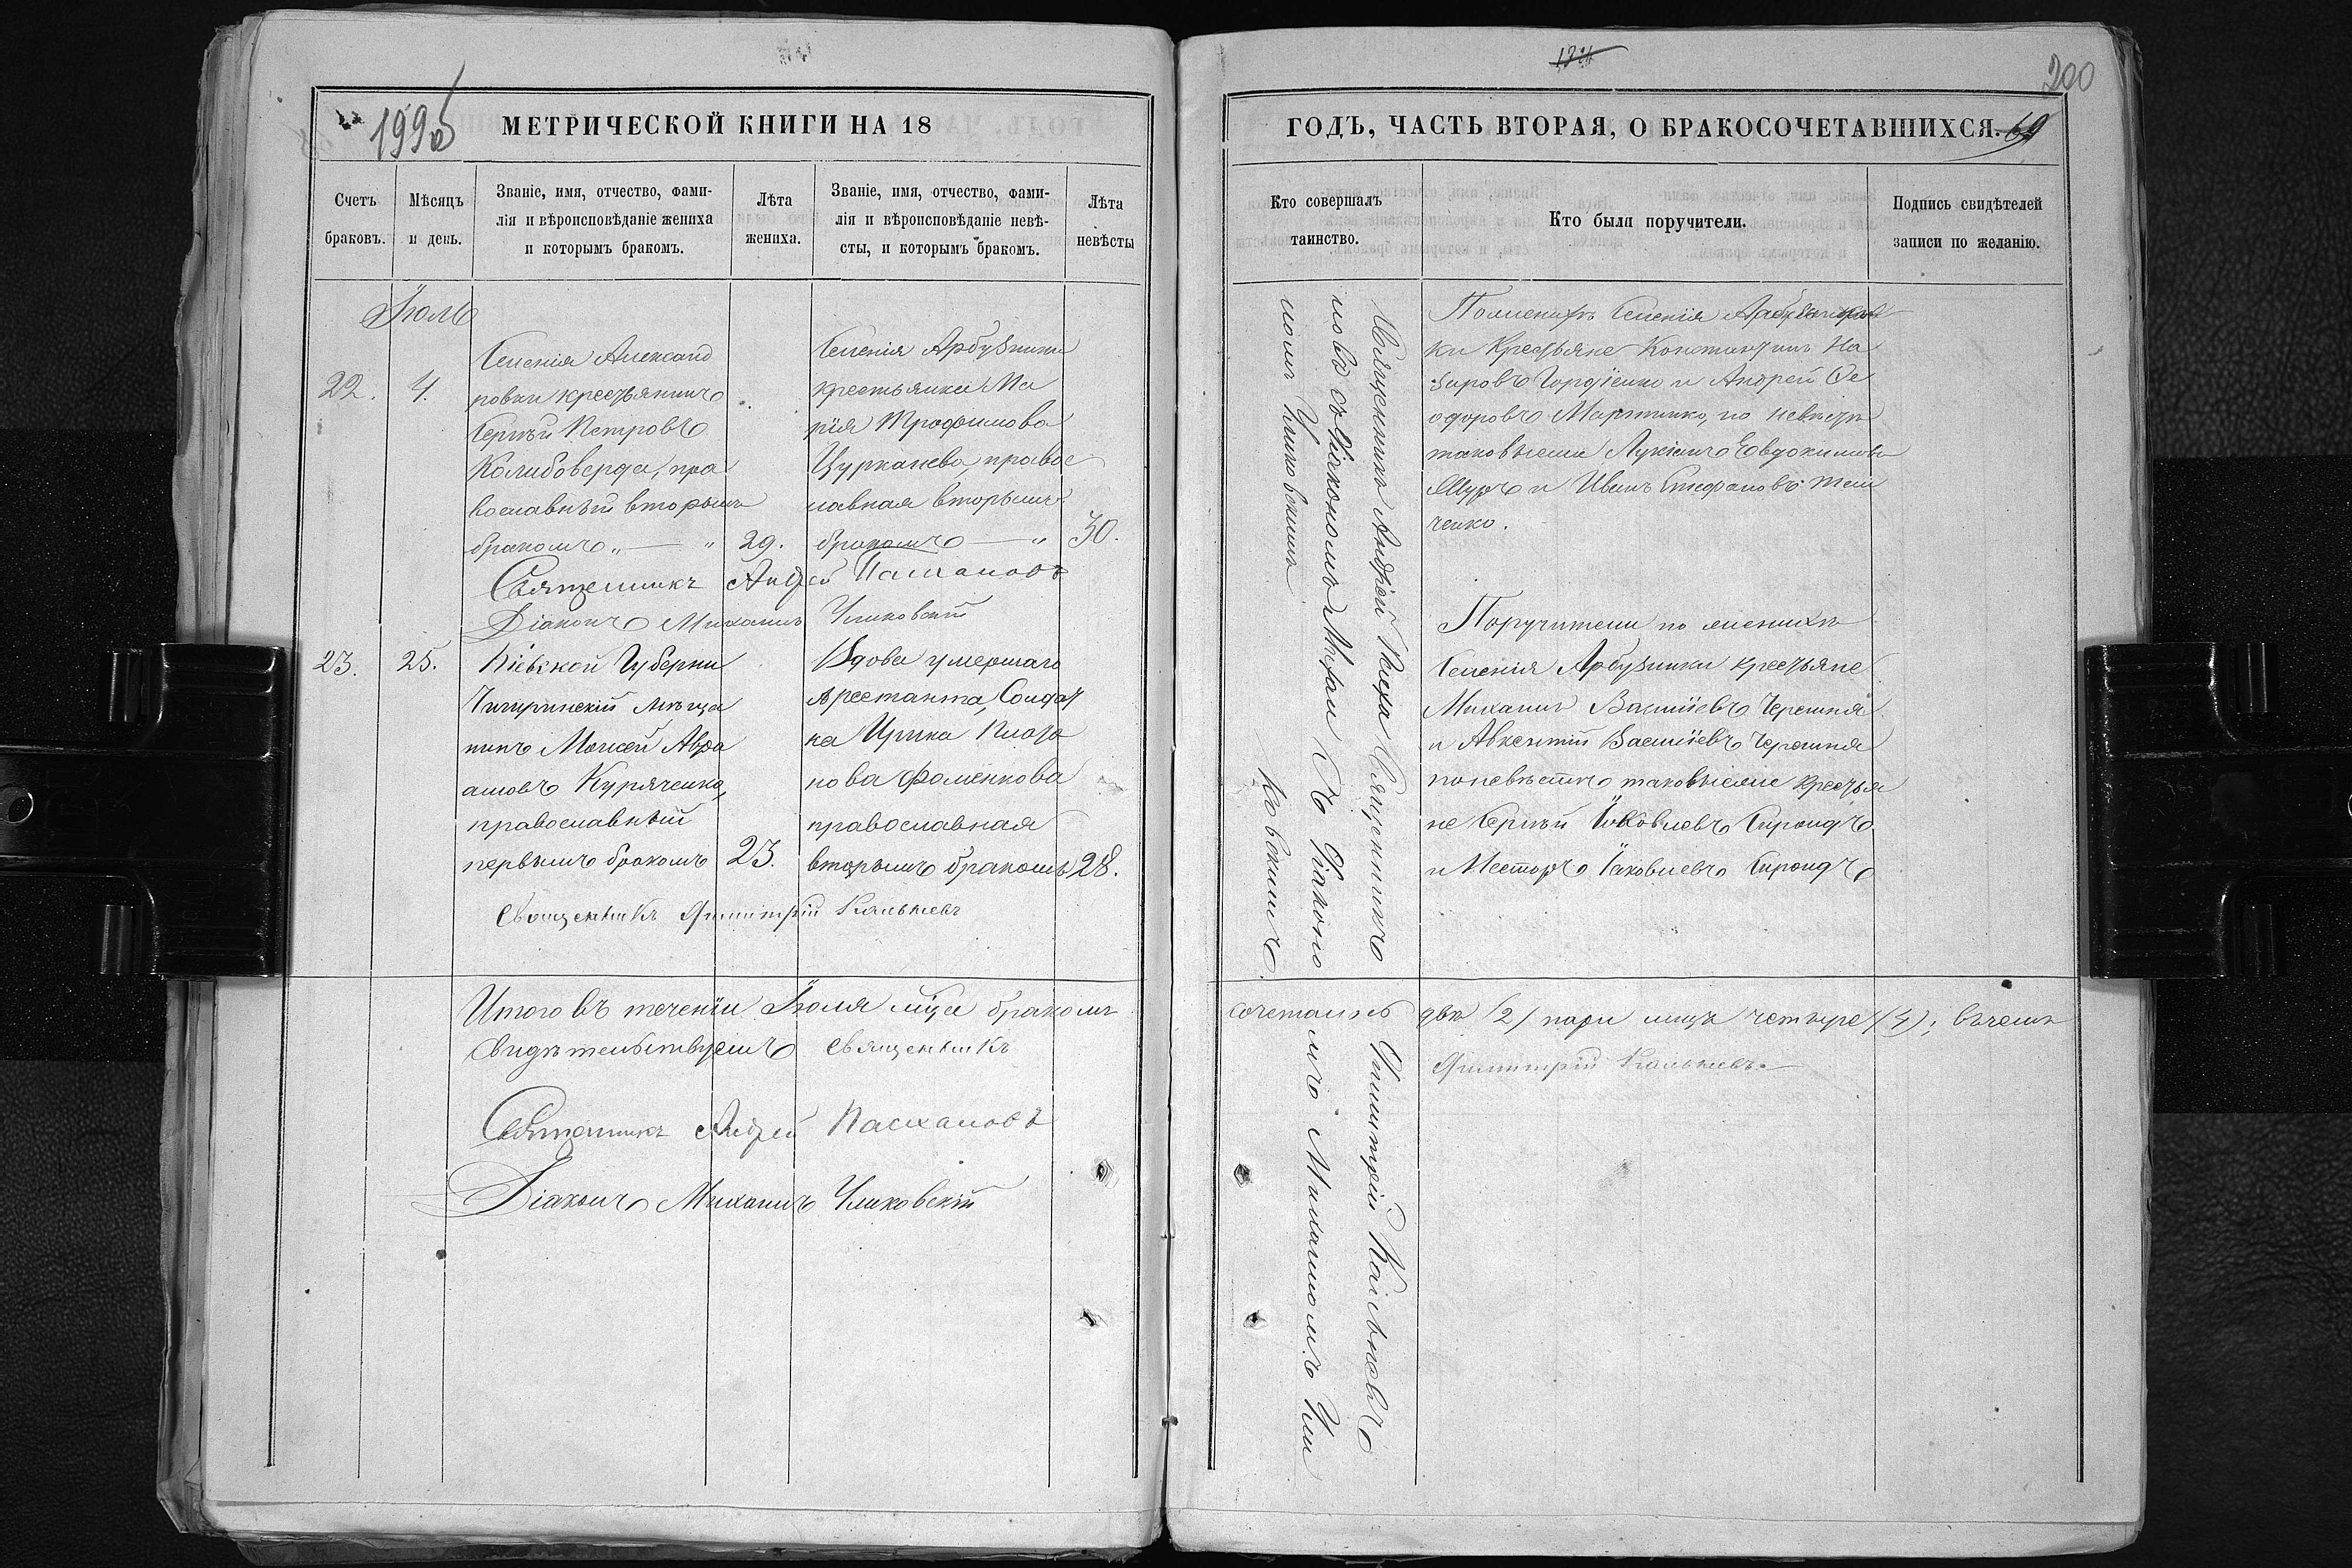 МЕТРИЧЕСКОЙ КНИГИ НА 18
Счетъ браковъ.
Мѣсяцъ и день.
Званіе, имя, отчество, фами-
лія и вѣроисповѣданіе жениха
и которымъ бракомъ.
Лѣта
жениха.
Званіе, имя, отчество, фами-
лія и вѣроисповѣданіе невѣ-
сты, и которымъ бракомъ.
Лѣта
невѣсты
Іюль
22.
4.
Селенія Александ
ровки крестьянинъ
Сергѣй Петровъ
Колибоверда, пра
вославный вторымъ
бракомъ „ — „
29.
Селенія Арбузинки
крестьянка Ма
рія Трофимова
Цурканева правос
лавная вторымъ
бракомъ — „
30.
Священникъ Андрей Пасхаловъ
Діаконъ Михаилъ Уликовскій
23.
25.
Кіевской Губерніи
Чигиринскій мѣща
нинъ Моисей Авра
амовъ Куряченко,
православный
первымъ бракомъ
23.
Вдова умершаго
Арестанта, Солдат
ка Ирина
нова Фоменкова
православная
вторымъ бракомъ
28.
Священникъ Димитрій Кальневъ
Итого въ теченіи Іюля мѣца бракомъ
свидѣтельствуемъ Священникъ
Священникъ Андрей Пасхаловъ
Діаконъ Михаилъ Уликовскій
200
ГОДЪ, ЧАСТЬ ВТОРАЯ, О БРАКОСОЧЕТАВШИХСЯ.
69
Кто совершалъ
таинство.
Кто были поручители.
Подпись свидѣтелей
записи по желанію.
Священникъ Андрей Пасха
ловъ съ Діакономъ Михаи
ломъ Уликовскимъ
По женихѣ Селенія Арбузин
ки Крестьяне Константинъ На
заровъ Гордіенко и Андрей Ѳе
одоровъ Мартинко, по невѣстѣ
таковыеже Лукіянъ Евдокимовъ
и Иванъ Стефановъ Тем
ченко.
Священникъ Димитрій Кальневъ
съ Діаконо
мъ Михаиломъ Ули
ковскимъ
Поручители по женихѣ
Селенія Арбузинки крестьяне
Михаилъ Васильевъ Черешня
и Авксентій Васильевъ Черешня
по невѣстѣ таковыеже крестья
не Сергѣй Іаковлевъ
и Несторъ Іаковлевъ
сочеталось двѣ (2) пары лицъ четыре (4); въ чемъ
Димитрій Кальневъ.